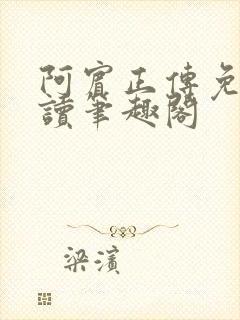 阿賓正傳免
讀筆趣閣
梁濱